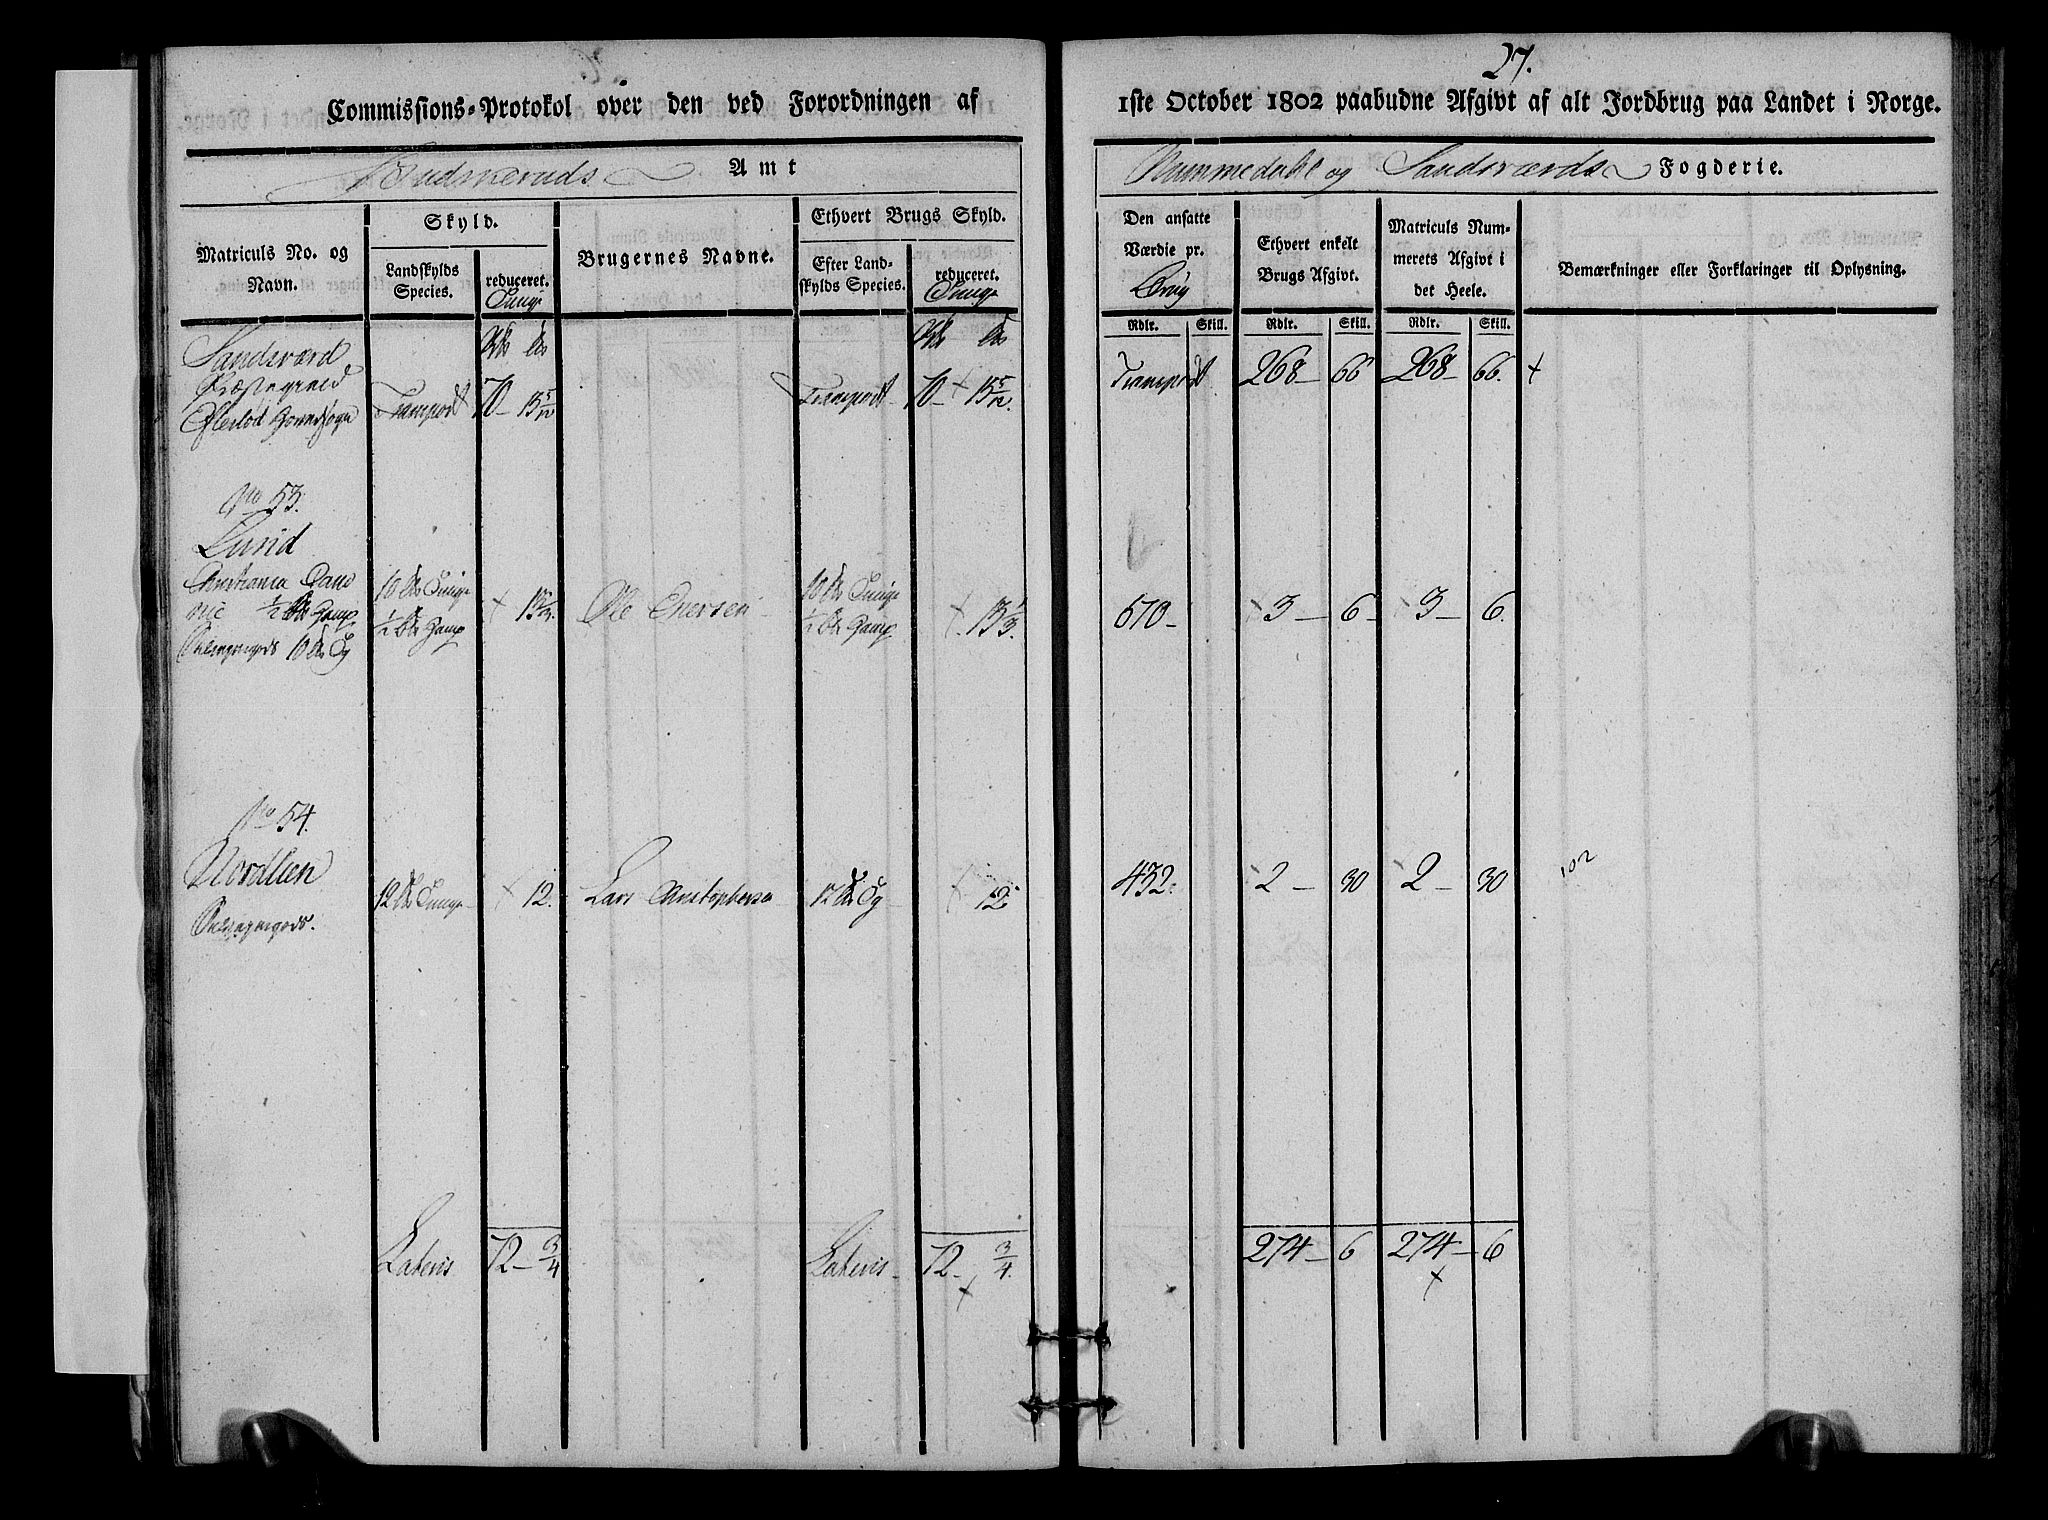 27.
Commissions-Protokol over den ved Forordningen af 1ste October 1802 paabudne Afgivt af alt Jordbrug paa Landet i Norge.
Budskeruds Amt
Nummedahl og Sandsværds Fogderie.
Matriculs No. og Navn.
Skyld.
Landskylds Species.
reduceret. Tunge
Brugernes Navne.
Ethvert Brugs Skyld.
Efter Landskylds Species.
reduceret. Tunge
Den ansatte Værdie pr. Brug
Ethvert enkelt Brugs Afgivt.
Matriculs Nummerets Afgivt i det Heele.
Bemærkninger eller Forklaringer til Oplysning.
Rdlr. Skill. Rdlr. Skill. Rdlr. Skill.
Sandsværd
Præstegield
Eftelød Hovedsogn
Transport 70 - 13 5/12 Transport 70 - 13 5/12. Transport 268 - 66 268 - 66.
No 53.
Lund
Christiania
1/2
10
10 Tunge
1/2
13 1/3. Ole Enersen
10 Tunge
1/2
13 1/3. 570 - 3 - 6 - 3 - 6.
No 54.
Nordlien
12 Tunge 12. Lars Christophersen 12 Tg 12 432. 2 - 30 2 - 30 102
Selveyergods.
Lateris 72 - 3/4 Lateris 72 - 3/4. 274 - 6 274 - 6